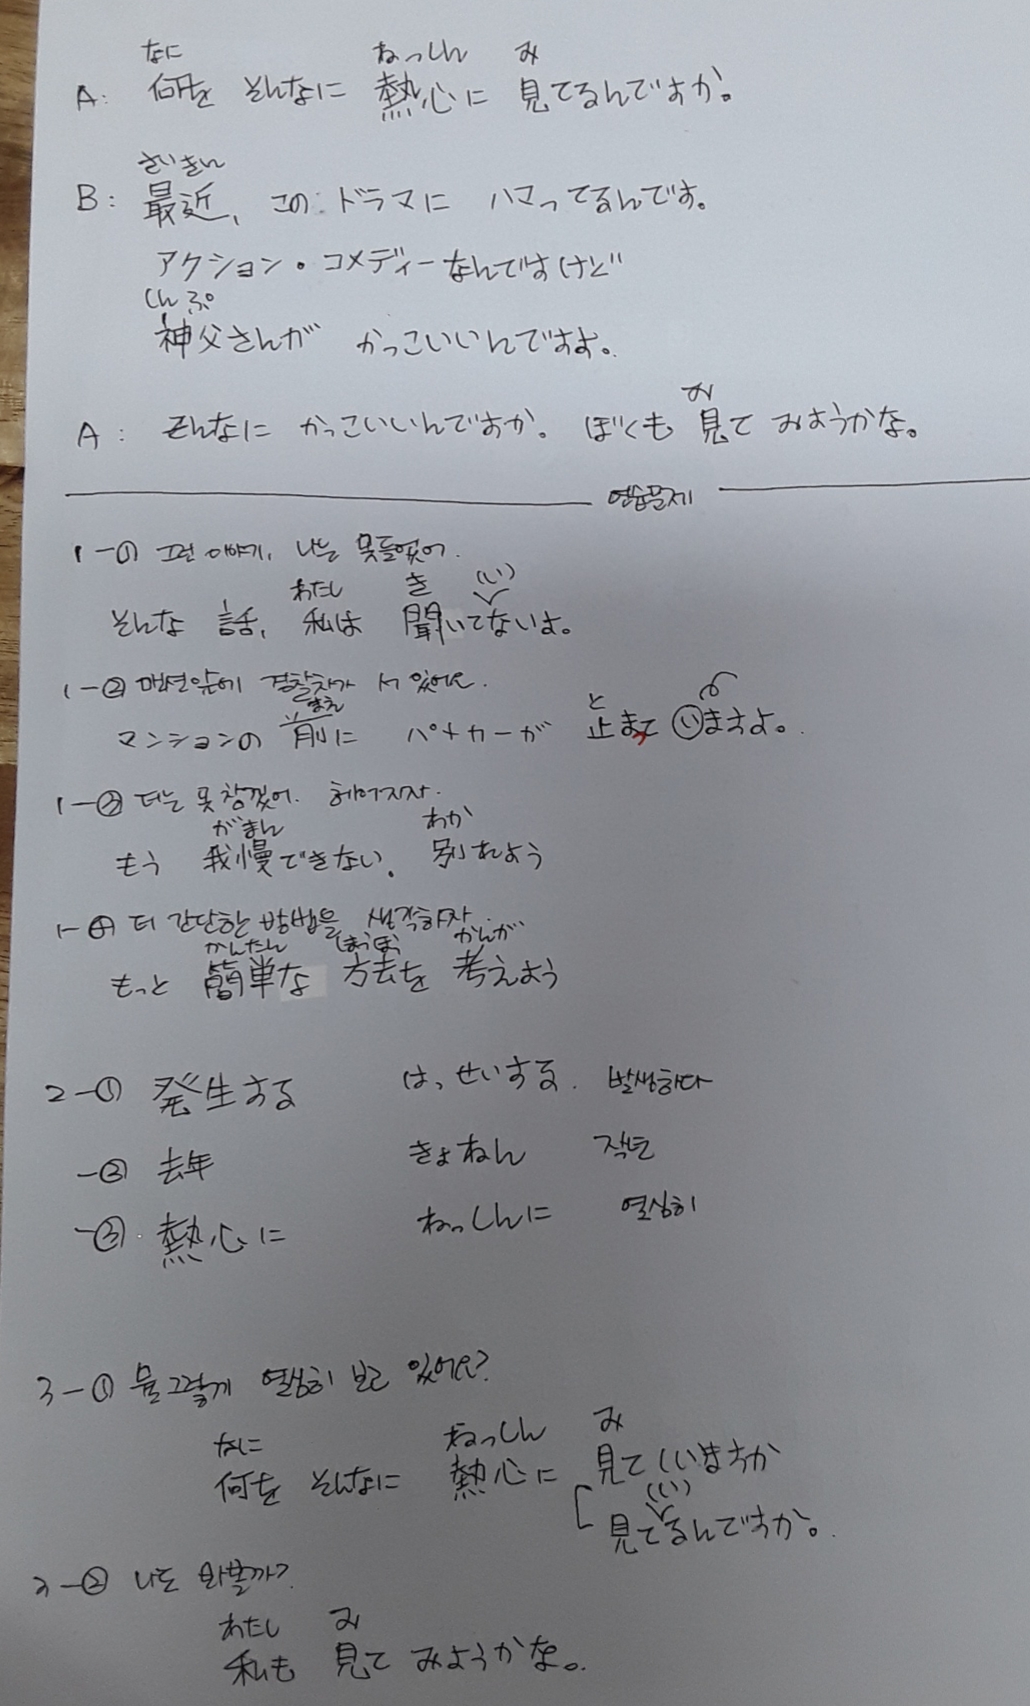 なに ねっしん み
A: 何を そんなに 熱心に 見てるんですか。
さいきん
B: 最近、この ドラマに ハマってるんです。
アクション・コメディーなんですけど
しんぷ
神父さんが かっこいいんですよ。
み
A: そんなに かっこいいんですか。 ぼくも 見て みようかな。
연습문제
1-① 그런 이야기, 나는 못들었어.
わたし き (い)
そんな 話、 私は 聞いてないよ。
1-② 맨션앞에 경찰차가 서 있어요.
まえ と
マンションの 前に パトカーが 止まて いますよ。
1-③ 더는 못 참겠어. 헤어지자.
がまん わか
もう 我慢できない。 別れよう
1-④ 더 간단한 방법을 생각하자.
かんたん ほうほう かんが
もっと 簡単な 方法を 考えよう
2-① 発生する はっせいする. 발생하다
-② 去年 きょねん 작년
-③ 熱心に ねっしんに 열심히
3-① 뭘 그렇게 열심히 보고 있어요?
なに ねっしん み
何を そんなに 熱心に 見て いますか
(い)
見てるんですか。
3-② 나도 봐볼까?
わたし み
私も 見て みようかな。